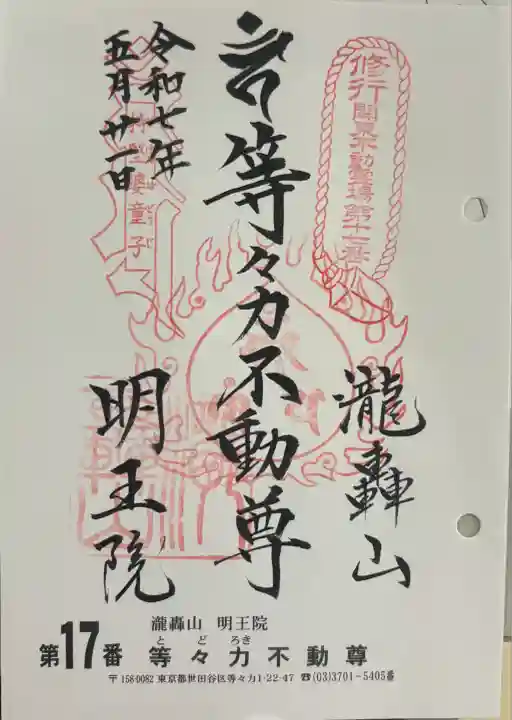 修行 関東不動霊場 第十七番
瀧轟山
等々力不動尊
令和七年
五月廿一日
明王院
童子
瀧轟山 明王院
とどろき
第17番 等々力不動尊
〒158-0082 東京都世田谷区等々力1-22-47 ☎(03)3701-5405番